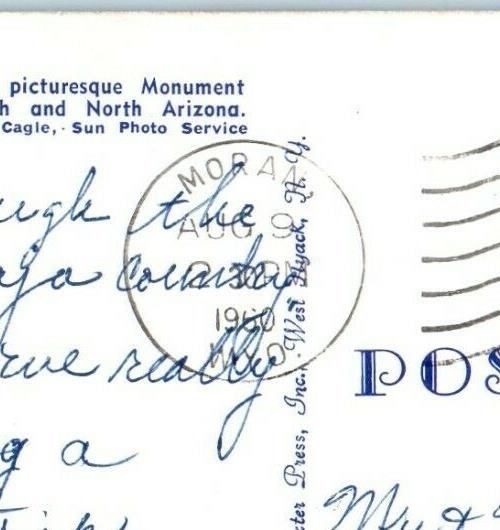 picturesque Monument
h and North Arizona.
Cagle, Sun Photo Service
MORAN
AUG 9
2 30 PM
1960
WYO
ugh the
country
rve really
g a
ter Press, Inc., West Nyack, N. Y.
POS